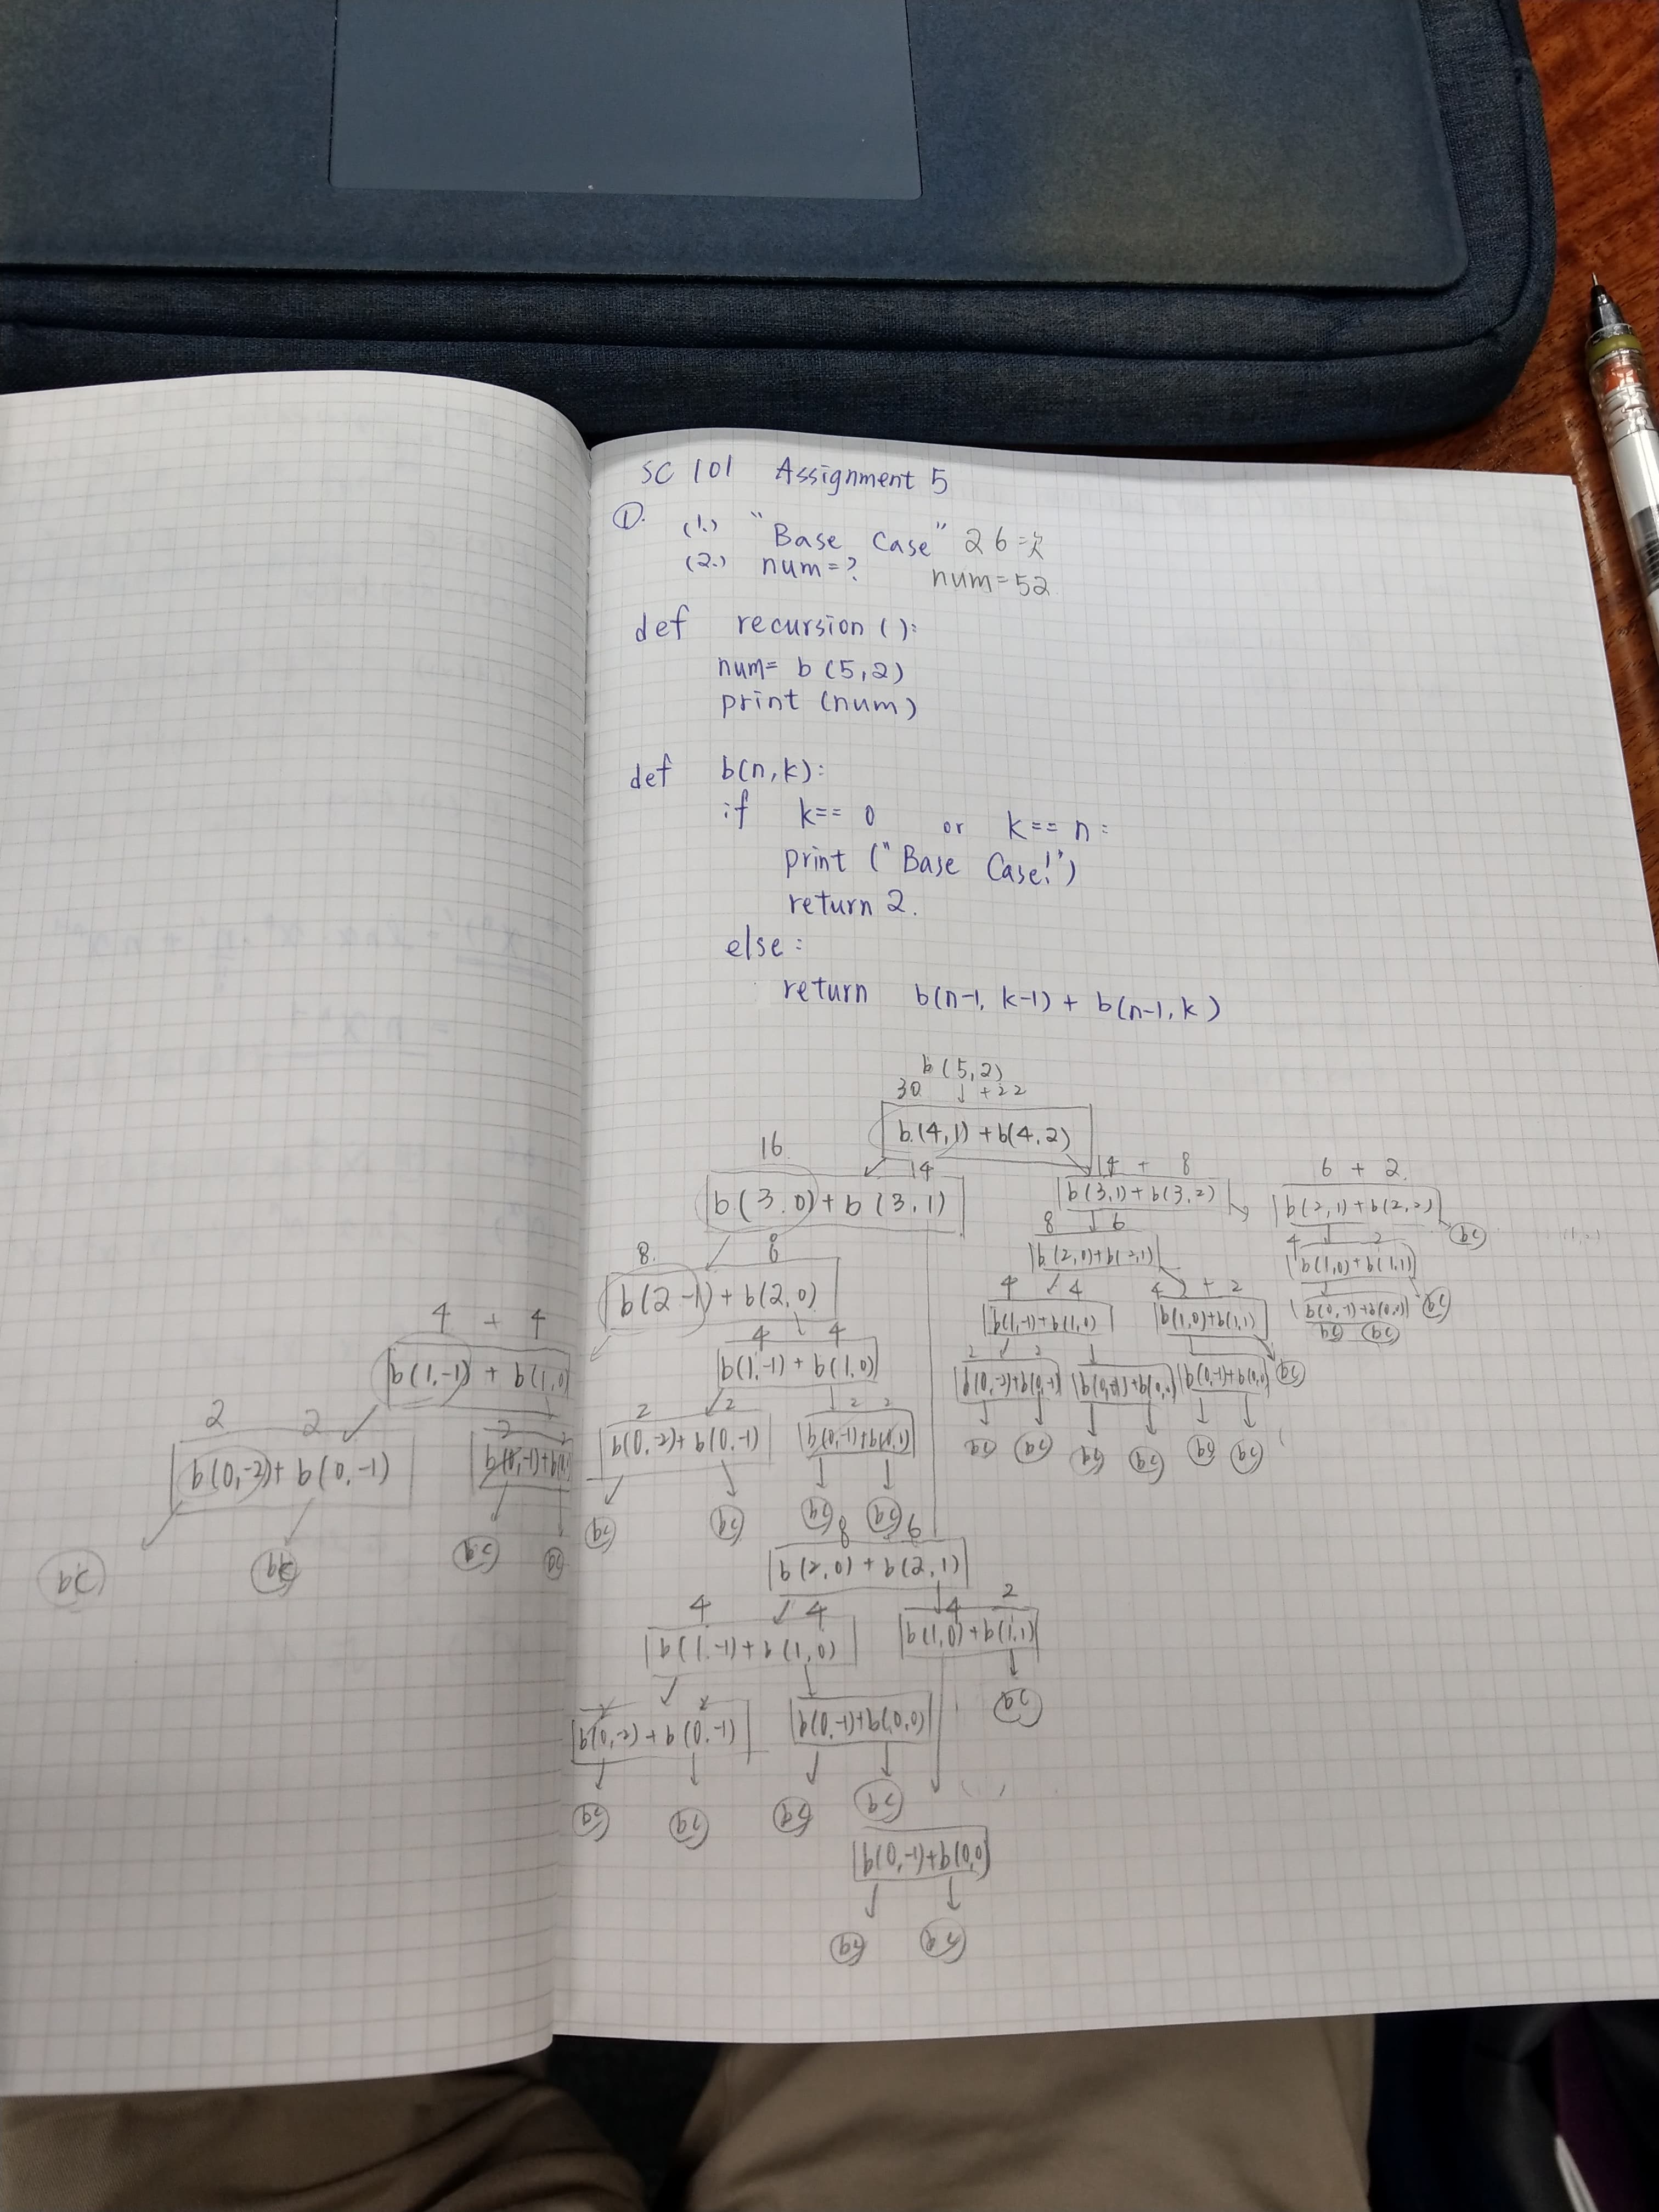 SC 101 Assignment 5
①. (1.) "Base Case" 26次
(2.) num=? num=52
def recursion ():
num= b (5,2)
print (num)
def b(n,k):
if k== 0 or k== n:
print ("Base Case!")
return 2.
else:
return b(n-1, k-1) + b(n-1, k)
b(5,2)
30 +22
b(4,1)+b(4,2)
16 14
b(3,0)+b(3,1)
14 + 8
b(3,1)+b(3,2)
6 + 2
b(2,1)+b(2,2)
8 6
b(2,0)+b(2,1)
4 2
b(1,0)+b(1,1)
8 8
b(2,-1)+b(2,0)
4 4
b(1,-1)+b(1,0)
4 + 2
b(1,0)+b(1,1)
b(0,-1)+b(0,0)
4 + 4
b(1,-1)+b(1,0)
4 4
b(1,-1)+b(1,0)
2 2
b(0,-2)+b(0,-1)
b(0,-1)+b(0,0)
b(0,-1)+b(0,0)
2 2
b(0,-2)+b(0,-1)
2 2
b(0,-1)+b(0,0)
2 2
b(0,-2)+b(0,-1)
2 2
b(0,-1)+b(0,0)
8 6
b(2,0)+b(2,1)
4 4
b(1,-1)+b(1,0)
4 2
b(1,0)+b(1,1)
2 2
b(0,-2)+b(0,-1)
b(0,-1)+b(0,0)
b(0,-1)+b(0,0)